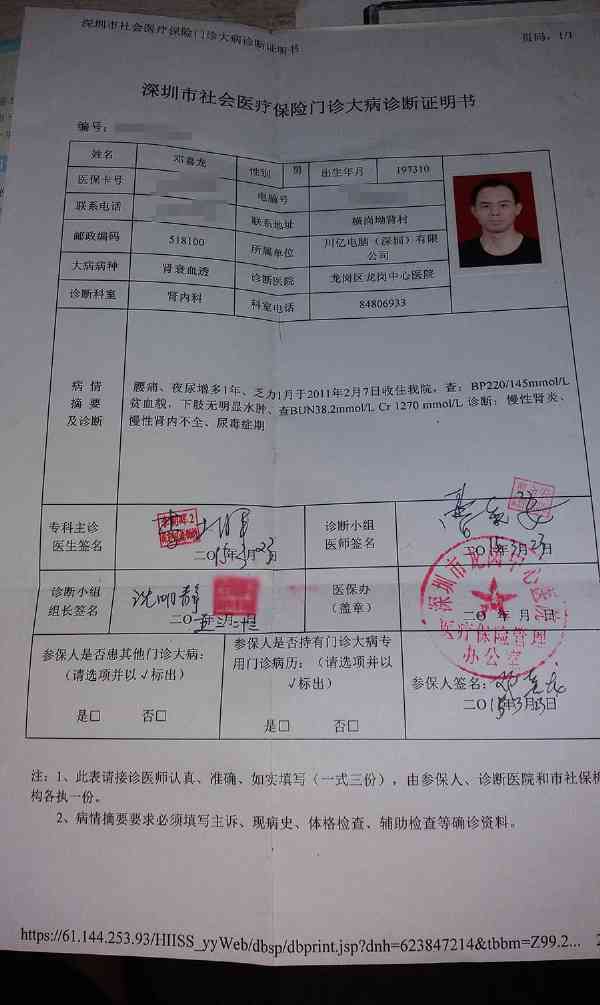 深圳市社会医疗保险门诊大病诊断证明书
页码，1/1
深圳市社会医疗保险门诊大病诊断证明书
编号：
姓名 邓喜龙 性别 男 出生年月 197310
医保卡号 电脑号
联系电话 联系地址 横岗坳背村
邮政编码 518100 所属单位 川亿电脑（深圳）有限公司
大病病种 肾衰血透 诊断医院 龙岗区龙岗中心医院
诊断科室 肾内科 科室电话 84806933
病 情
摘 要
及诊断
腰痛、夜尿增多1年、乏力1月于2011年2月7日收住我院，查：BP220/145mmol/L
贫血貌，下肢无明显水肿、查BUN38.2mmol/L Cr 1270 mmol/L 诊断：慢性肾炎、
慢性肾内不全、尿毒症期
专科主诊
医生签名
二〇15年3月23日
诊断小组
医师签名
二〇15年3月23日
诊断小组
组长签名
医保办
（盖章）
二〇 年 月 日
深圳市龙岗中心医院
医疗保险管理
办公室
参保人是否患其他门诊大病：
（请选项并以√标出）
是□ 否□
参保人是否持有门诊大病专
用门诊病历：（请选项并以
√标出）
是□ 否□
参保人签名：
二〇15年3月23日
注：1、此表请接诊医师认真、准确、如实填写（一式三份），由参保人、诊断医院和市社保机
构各执一份。
2、病情摘要要求必须填写主诉、现病史、体格检查、辅助检查等确诊资料。
https://61.144.253.93/HIISS_yyWeb/dbsp/dbprint.jsp?dnh=623847214&tbbm=Z99.2...